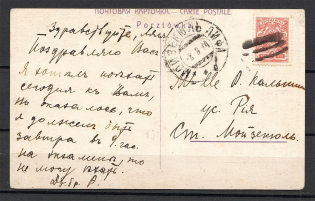 ПОЧТОВАЯ КАРТОЧКА. CARTE POSTALE.
Pocztówka
Здравствуйте, Ляля
Поздравляю Васъ
Я хотѣлъ поѣхать
сегодня къ Вамъ,
но оказалось, что
я долженъ быть
завтра въ 9 час.
на экзаменѣ, то
не могу ѣхать.
М-lle О.
ус. Рія
Ст. Мойзекюль